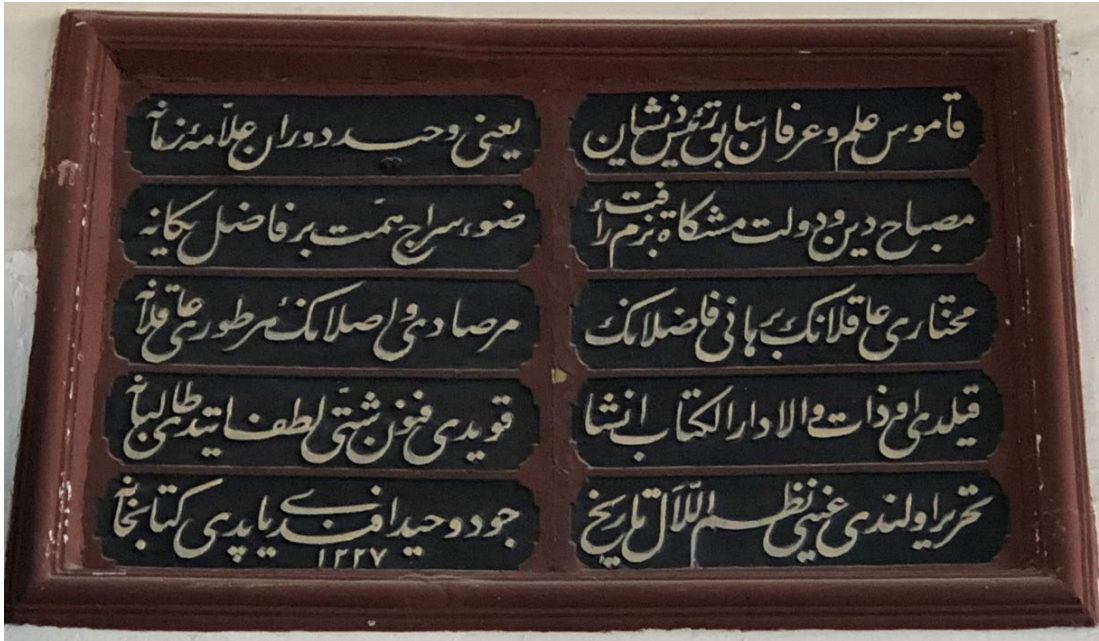 قاموس علم و عرفان سابق رئیس ذیشان
یعنی وحید دوران علّامهٔ زمانه
مصباح دین و دولت مشکاة بزم رأفت
ضوء سراج همّت بر فاضل یکانه
مختاری عاقلانك برهانی فاضلانك
مرصادی واصلانك هر طوری عاقلانه
قیلدی او ذات والا دار الکتاب انشا
قویدی فنون شتّی لطف ایتدی طالبانه
تحریر اولندی عینی نظم اللّآل تاریخ
جود وحید افندی یاپدی کتابخانه
١٢٢٧